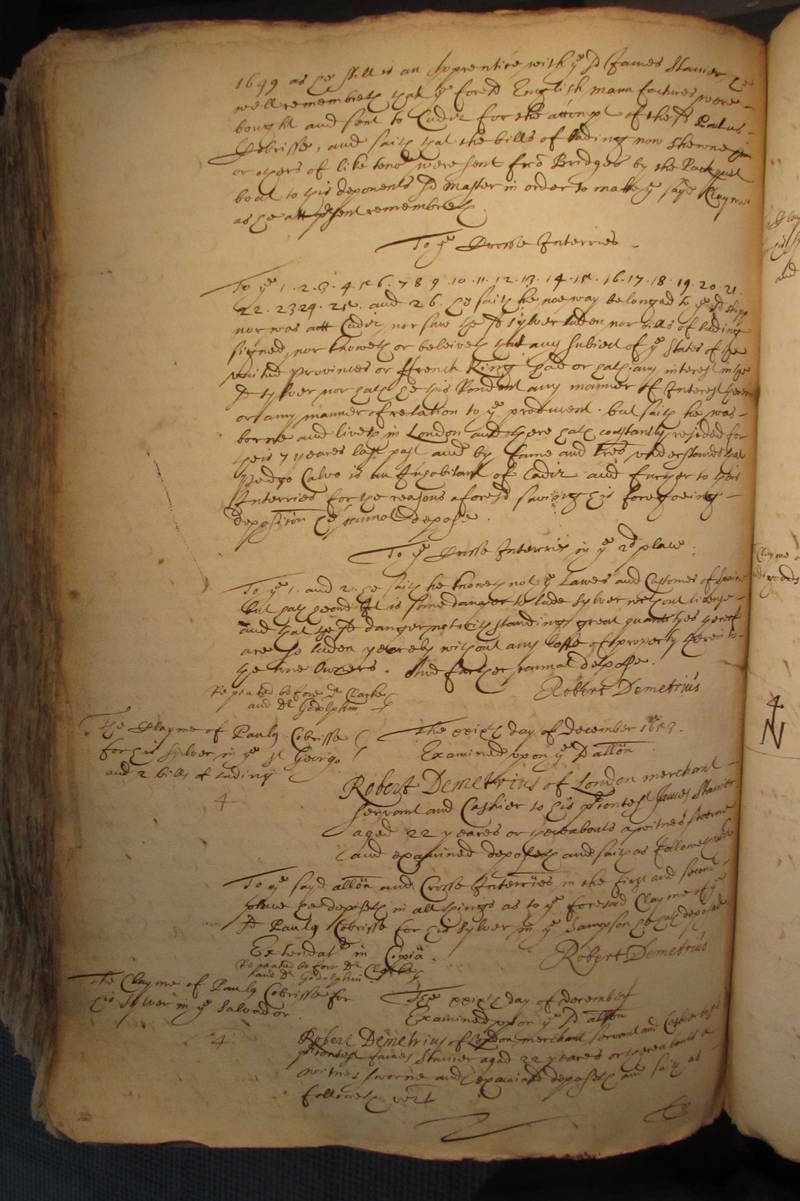 1649 as he still is an Apprentice with ye sd James Stanier he
well remembreth that ye foresd English manufactures were
bought and sent to Cadiz for the accompt of the sd Paulus
Cobrisse, and saith that the bills of lading now shewne him
or others of like teno:r were sent fro Bridges by the Pacquet
boat to this deponents sd Master in order to make ye sayd Clayme
as he att psent remembreth
To ye Crosse Interries
To ye 1. 2. 3. 4 5 6. 7 8 9. 10. 11. 12. 13. 14. 15. 16. 17. 18. 19. 20. 21
22. 23 24. 25. and 26. he saith he noe way belonged to ye sd shipp
nor was att Cadiz, nor saw the sd sylver laden nor bills of lading
signed, nor knoweth or beleiveth that any subiect of ye States of the
united Provinces or ffrench King had or hath any interest in the
sd sylver nor hath he this Rendent any manner of Interest therein
or any manner of relation to ye producent. but saith he was
borne and liveth in London and there hath constantly resided for
theis 7 yeares last past and by fame and tres understands that
Pedro Calvo is an Inhabitant of Cadiz and further to theis
Interries for the reasons aforesd saving his foregoeing
deposition he cannot depose.
To ye Crosse Interries in ye 2d place.
To ye 1. and 2. he saith he knoweth not ye Lawes and Customes of Spaine
but hath heard that it is some danger to lade sylver without license
and that the sd danger notwithstanding great quantityes thereof
are so laden yearely without any losse of property therein to
the true Owners. And further cannot depose.
Repeated before Dr Clarke
and Dr Godolphin
Robert Demetrius
The Clayme of Paulus Cobrisse
for his sylver in ye St George
and 2 bills of lading
4
The xxixth day of December 1653.
Examined upon ye sd allon
Robert Demetrius of London merchant
servant and Cashier to his pcontest James Stanier
aged 22 yeares or thereabouts a witnes sworne
and examined deposeth and saith as followeth
To ye sayd allon and Crosse Interries in the first and second
place hee deposeth in all things as to ye foresaid Clayme of ye
sd Paulus Cobrisse for his sylver in ye Sampson
Extendat in Copia
Repeated before Dr Clarke
and Dr Godolphin
Robert Demetrius
The Clayme of Paulus Cobrisse for
his sylver in ye Salvador
4
The xxixth day of December
Examined upon ye sd allon
Robert Demetrius of London merchant servant and Cashier to his
pcontest James Stanier aged 22 yeares or thereabouts a
witnes sworne and examined deposeth and saith as
followeth vizt